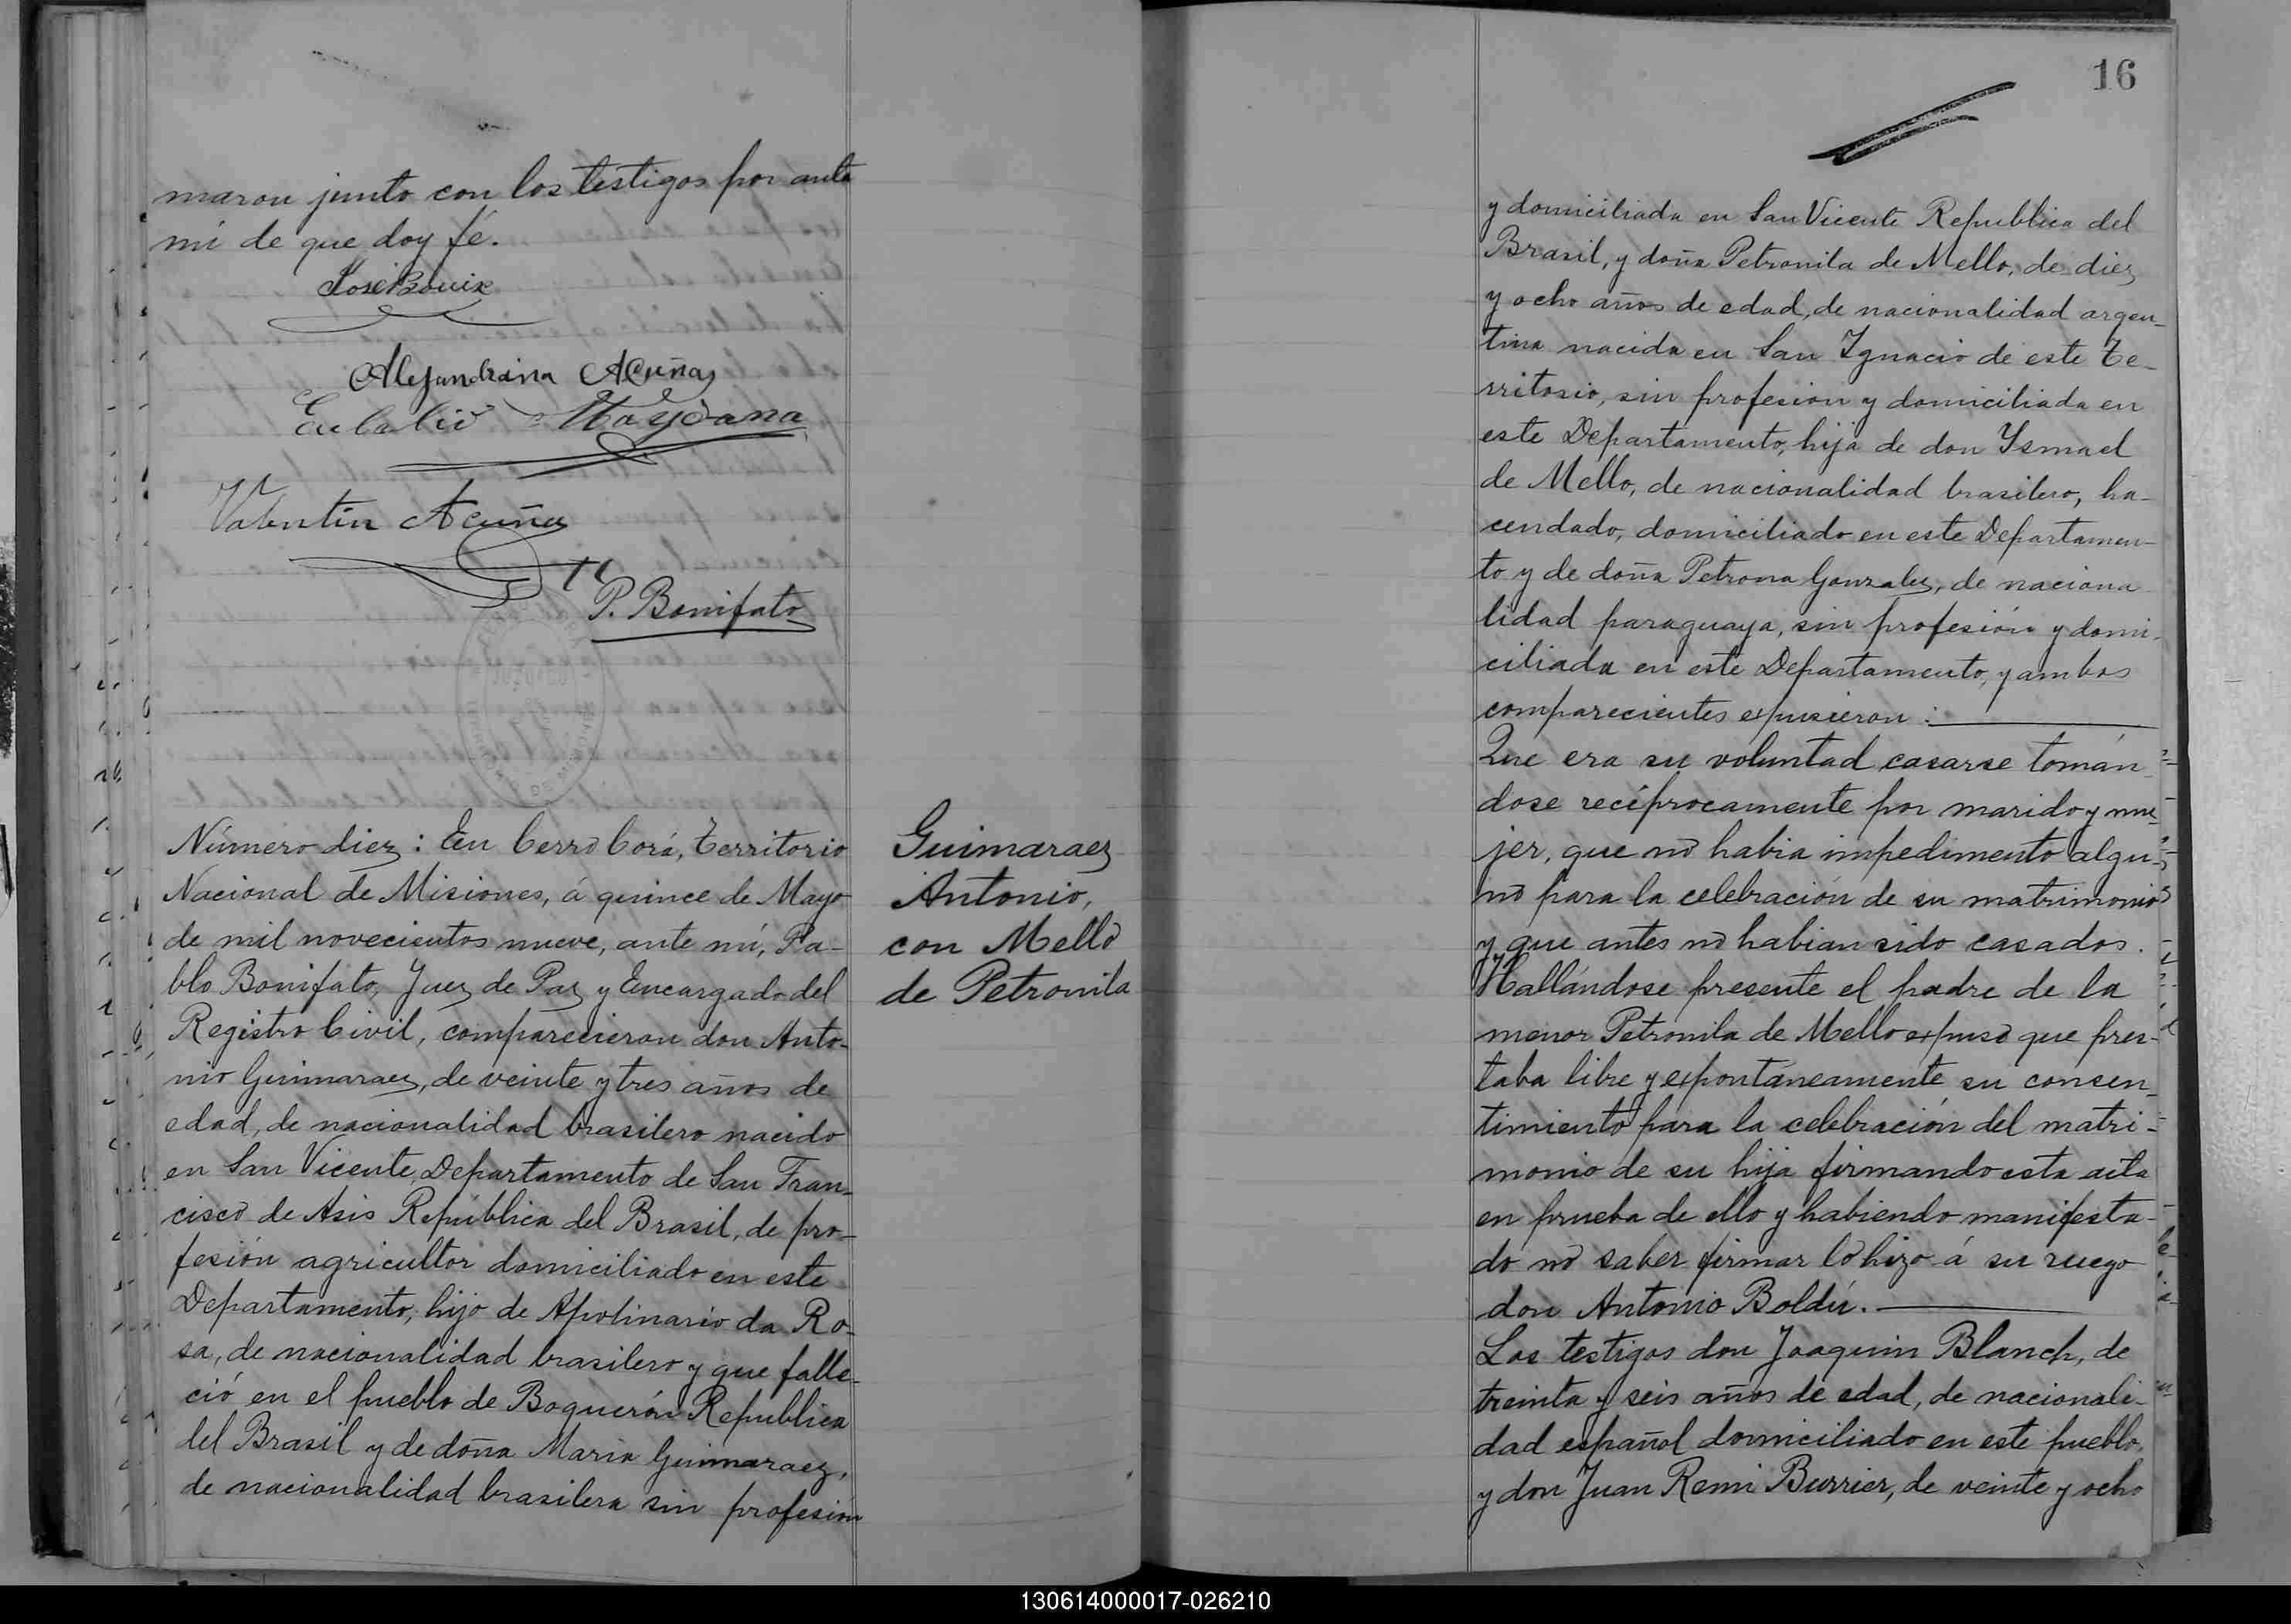 maron junto con los testigos por ante
mi de que doy fé.
José Bouix
Alejandrina Acuña
Eulalio Maydana
Valentín Acuña
P. Bonifato
Número diez: En Cerro Corá, territorio
Nacional de Misiones, á quince de Mayo
de mil novecientos nueve, ante mí, Pa-
blo Bonifato, Juez de Paz y Encargado del
Registro Civil, comparecieron don Anto-
nio Guimaraez, de veinte y tres años de
edad, de nacionalidad brasilero nacido
en San Vicente, Departamento de San Fran-
cisco de Asis República del Brasil, de pro-
fesión agricultor domiciliado en este
Departamento, hijo de Apolinario da Ro-
sa, de nacionalidad brasilero y que falle-
ció en el pueblo de Boquerón Republica
del Brasil y de doña Maria Guimaraez,
de nacionalidad brasilera sin profesión
Guimaraez
Antonio,
con Mello
de Petronila
16
y domiciliada en San Vicente Republica del
Brasil, y doña Petronila de Mello, de diez
y ocho años de edad, de nacionalidad argen-
tina nacida en San Ignacio de este te-
rritorio, sin profesion y domiciliada en
este Departamento, hija de don Ysmael
de Mello, de nacionalidad brasilero, ha-
cendado, domiciliado en este Departamen-
to y de doña Petrona Gonzalez, de naciona
lidad paraguaya, sin profesión y domi-
ciliada en este Departamento, y ambos
comparecientes expusieron:
Que era su voluntad casarse tomán
dose recíprocamente por marido y mu-
jer, que nó habia impedimento algu-
nó para la celebración de su matrimonio
y que antes nó habian sido casados.
Hallándose presente el padre de la
menor Petronila de Mello expuso que pres-
taba libre y expontáneamente su consen-
timiento para la celebración del matri-
monio de su hija firmando esta acta
en prueba de ello y habiendo manifesta-
do nó saber firmar lo hizo á su ruego
don Antonio Boldú.
Los testigos don Joaquin Blanch, de
treinta y seis años de edad, de nacionali-
dad español domiciliado en este pueblo,
y don Juan Remi Burrier, de veinte y ocho
130614000017-026210